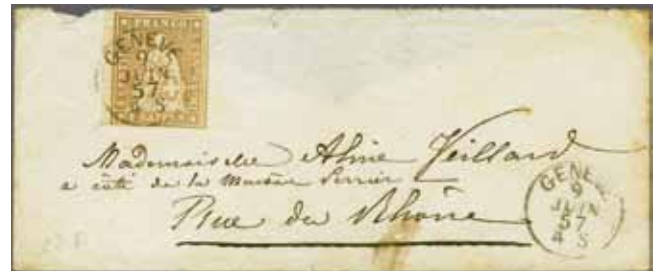 FRANCO
GENEVE
9
JUIN
57
4 S
Mademoiselle Aline Veillard
a côté de la Maison
Rue du Rhône
GENEVE
9
JUIN
57
4 S